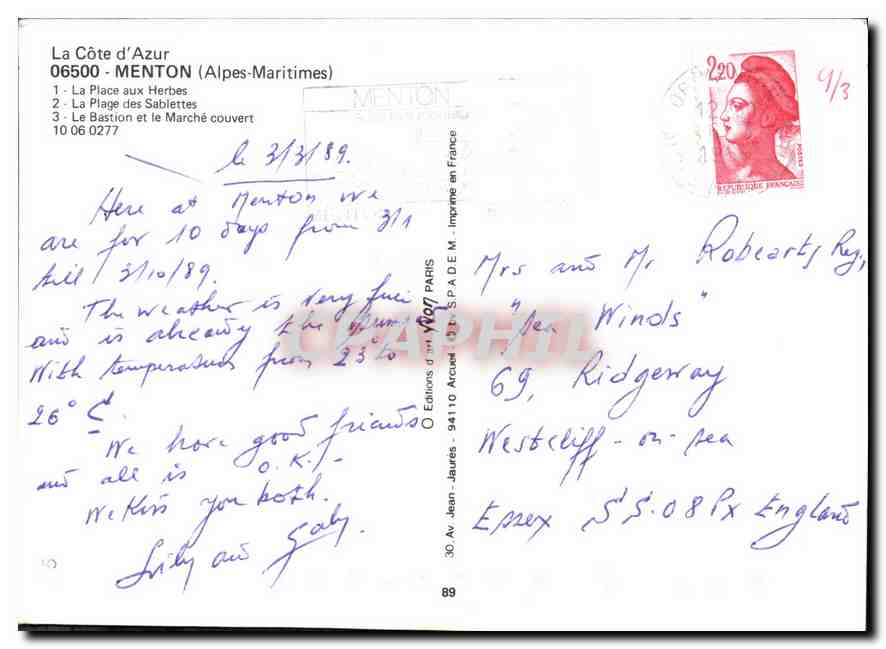 La Côte d'Azur
06500 - MENTON (Alpes-Maritimes)
1 - La Place aux Herbes
2 - La Plage des Sablettes
3 - Le Bastion et le Marché couvert
10 06 0277
le 3/3/89.
Here at Menton we
are for 10 days from 3/1
till 3/10/89.
The weather is very fine
and is already the
With temperature from 23° to
26° C.
We have good friends
and all is O.K! -
We Kiss you both.
and Gaby.
MENTON
2,20
POSTES
REPUBLIQUE FRANÇAISE
9/3
Mrs and Mr Robearts Reg,
"Sea Winds"
69, Ridgeway
Westcliff-on-sea
Essex SS.08Px England
30, Av. Jean-Jaurès - 94110 Arcueil - © by S.P.A.D.E.M. - Imprimé en France
Editions d'art yvon PARIS
89
CPAPHIL